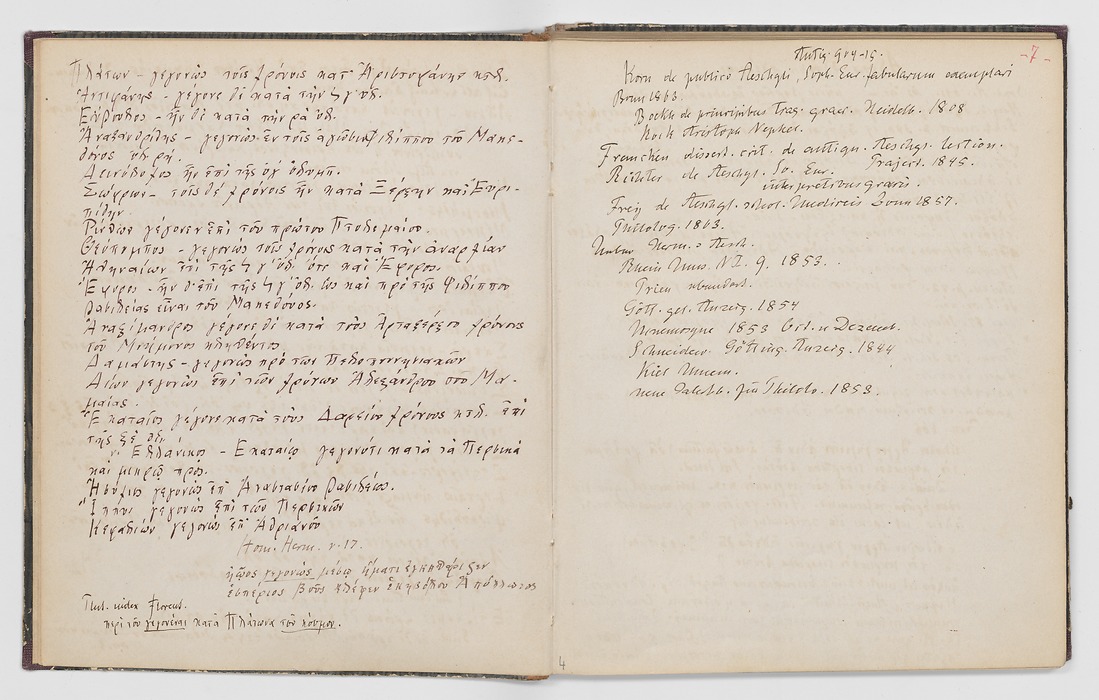 Πλάτων – γεγονὼς τοῖς χρόνοις κατ' Ἀριστοφάνην κτλ.
Ἀντιφάνης – γέγονε δὲ κατὰ τὴν
Εὔβουλος – ἦν δὲ κατὰ τὴν ρα ὀλ.
Ἀναξανδρίδης – γεγονὼς ἐν τοῖς ἀγῶσι Φιλίππου τοῦ Μακε-
δόνος ὀλ. ρη.
Δεινόλοχος ἦν ἐπὶ τῆς ογ ὀλυμπ.
Σώφρων – τοῖς δὲ χρόνοις ἦν κατὰ Ξέρξην καὶ Εὐρι-
πίδην.
Ῥίνθων γέγονεν ἐπὶ τοῦ πρώτου Πτολεμαίου.
Θεόπομπος – γεγονὼς τοῖς χρόνοις κατὰ τὴν ἀναρχίαν
Ἀθηναίων ἐπὶ τῆς ϟγ' ὀλ. ὅτε καὶ Ἔφορος.
Ἔφορος – ἦν δ' ἐπὶ τῆς ϟγ' ὀλ. ὡς καὶ πρὸ τῆς Φιλίππου
βασιλείας εἶναι τοῦ Μακεδόνος.
Ἀναξίμανδρος γέγονε δὲ κατὰ τοὺς Ἀρταξέρξου χρόνους
τοῦ Μνήμονος κληθέντος
Δαμάστης – γεγονὼς πρὸ τῶν Πελοποννησιακῶν
γεγονὼς ἐπὶ τῶν χρόνων Ἀλεξάνδρου τοῦ Μα-
μαίας.
Ἑκαταῖος γέγονε κατὰ τοὺς Δαρείου χρόνους κτλ. ἐπὶ
τῆς ξε ὀλ.
Ἑλλάνικος – Ἑκαταίῳ γεγονότι κατὰ τὰ Περσικὰ
καὶ μικρῷ πρός.
γεγονὼς ἐπ' Ἀναστασίου βασιλέως.
Ἵππυς γεγονὼς ἐπὶ τῶν Περσικῶν
Κεφαλίων γεγονὼς ἐπ' Ἀδριανοῦ
Hom. Herm. v. 17.
ἠῷος γεγονὼς μέσῳ ἤματι ἐγκιθάριζεν
ἑσπέριος βοῦς κλέψεν ἑκηβόλου Ἀπόλλωνος
Plut. index
περὶ τοῦ γεγονέναι κατὰ Πλάτωνα τὸν κόσμον.
4
-7-
904–15.
Korn de publico Aeschyli, Soph. Eur. fabularum exemplari
Bonn 1863.
Boekh de principibus trag. graec. Heidelb. 1808
Nephel.
Francken dissert. crit. de antiqu. Aeschyl. lection.
Traject. 1845.
Richter de Aeschyl. So. Eur.
interpretibus graecis.
Frey de Aeschyl. schol. Mediceis Bonn 1857.
Philolog. 1863.
Herm. Aesch.
Rhein Mus. N.F. 9. 1853.
Trien
Gött. gel. Anzeig. 1854
Mnemosyne 1853 Oct. u Dezemb.
Schneidew. Götting. Anzeig. 1844
Kiel
neue Jahrbb. für Philolo. 1853.